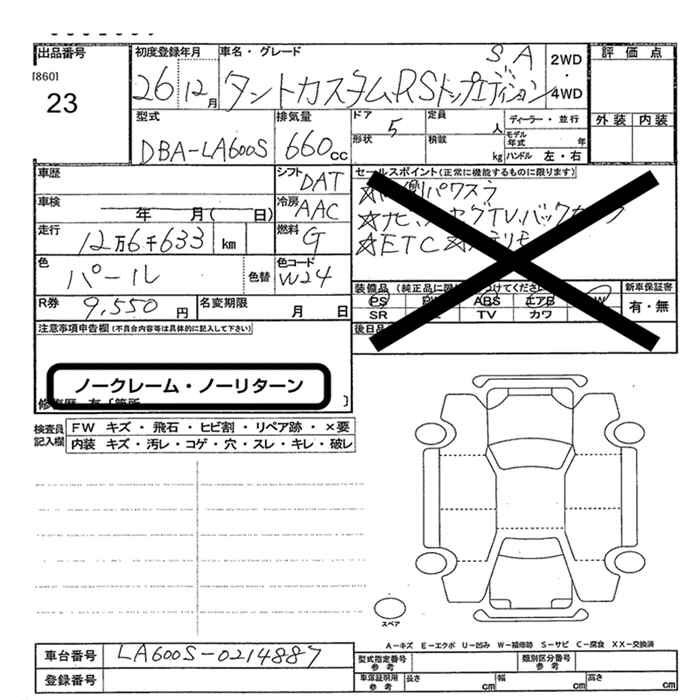 出品番号
[860]
23
初度登録年月
26 12月
車名・グレード
SA
タントカスタムRSトップエディション
2WD
・
4WD
評価点
外装 内装
型式
DBA-LA600S
排気量
660cc
ドア 5
形状
定員 人
積載 kg
ディーラー・並行
モデル年式 年
ハンドル 左・右
車歴
シフト DAT
車検 年 月( 日)
冷房 AAC
走行 12万6千633 km
燃料 G
色 パール 色替
色コード W24
R券 9,550円
名変期限 月 日
セールスポイント(正常に機能するものに限ります)
パワスラ
ETC
装備品
PS ABS エアB
SR TV カワ
新車保証書
有・無
後日品
注意事項申告欄(不具合内容等は具体的に記入して下さい)
ノークレーム・ノーリターン
検査員記入欄
FW キズ・飛石・ヒビ割・リペア跡・×要
内装 キズ・汚レ・コゲ・穴・スレ・キレ・破レ
スペア
A-キズ E-エクボ U-凹み W-補修跡 S-サビ C-腐食 XX-交換済
車台番号 LA600S-0214887
登録番号
型式指定番号参考
類別区分番号参考
車庫証明用参考 長さ cm 幅 cm 高さ cm